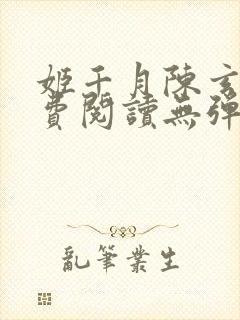 姬千月陳玄
費閱讀無彈
亂筆叢生